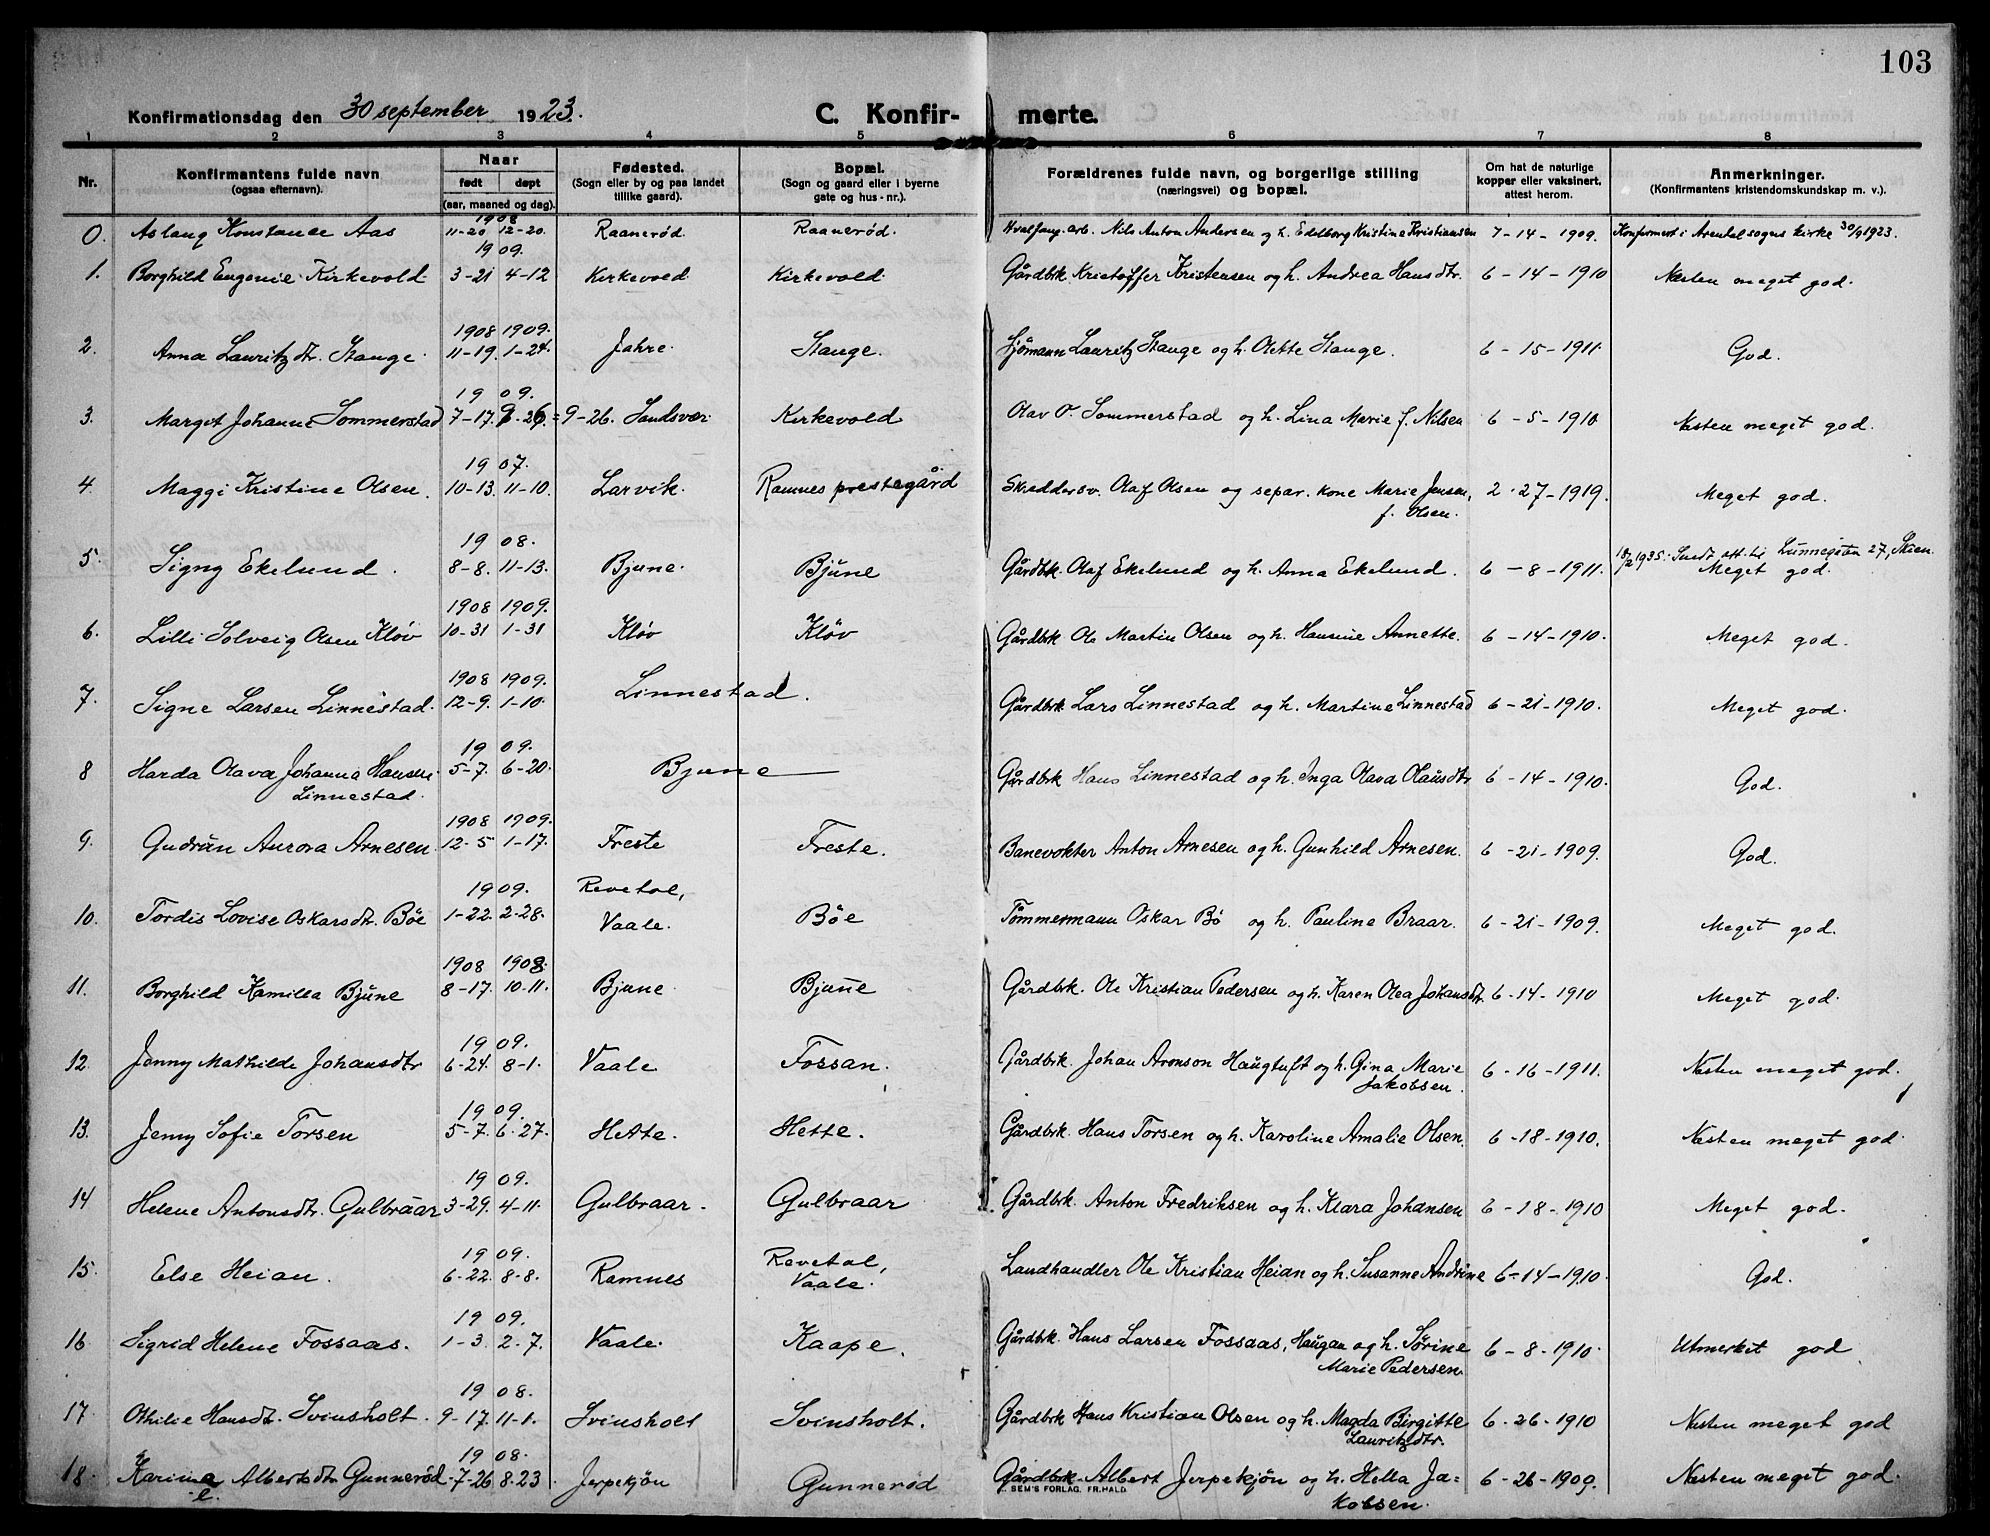 103
Konfirmationsdag den 30 september 1923. C. Konfirmerte.
1 2 3 4 5 6 7 8
Nr. Konfirmantens fulde navn (ogsaa efternavn). Naar født døpt (aar, maaned og dag). Fødested. (Sogn eller by og paa landet tillike gaard). Bopæl. (Sogn og gaard eller i byerne gate og hus-nr.). Forældrenes fulde navn, og borgerlige stilling (næringsvei) og bopæl. Om hat de naturlige kopper eller vaksinert, attest herom. Anmerkninger. (Konfirmantens kristendomskundskap m. v.).
1908
0. Aslaug Konstanse Aas 11-20 12-20. Raanerød. Raanerød. Hvalfang.arb. Nils Anton Andersen og h. Edelborg Kristine Kristiansen 7-14-1909. Konfirmert i Arendal sogns kirke 30/9 1923.
1909.
1. Borghild Eugenie Kirkevold 3-21 4-12 Kirkevold Kirkevold Gårdbrk. Kristoffer Kristensen og h. Andrea Hansdtr. 6-14-1910 Nesten meget god.
1908 1909.
2. Anna Lauritzdtr. Stange. 11-19. 1-24. Jahre. Stange. Sjømann Lauritz Stange og h. Olette Stange. 6-15-1911. God.
1909.
3. Margot Johanne Sommerstad 7-17. 9-26. = 9-26. Sandsvær. Kirkevold Olav O. Sommerstad og h. Lina Marie f. Nilsen 6-5-1910 Nesten meget god.
1907.
4. Maggi Kristine Olsen. 10-13. 11-10. Larvik. Ramnes prestegård Skreddersv. Olaf Olsen og separ. kone Marie Jensen, 2-27-1919. Meget god.
f. Olsen.
1908.
18/2 1935. Sendt att. til Lunnegaten 27, Skien.
5. Signy Ekelund. 8-8. 11-13. Bjune. Bjune Gårdbk. Olaf Ekelund og h. Anna Ekelund. 6-8-1911. Meget god.
1908 1909.
6. Lilli Solveig Olsen Kløv 10-31 1-31 Kløv Kløv Gårdbrk Ole Martin Olsen og h. Hansine Annette. 6-14-1910. Meget god.
1908 1909.
7. Signe Larsen Linnestad. 12-9. 1-10. Linnestad. Gårdbrk Lars Linnestad og h. Martine Linnestad 6-21-1910. Meget god.
1909.
8 Harda Olava Johanna Hansen 5-7. 6-20. Bjune Gårdbrk Hans Linnestad og h. Inga Olava Olausdtr 6-14-1910. God.
Linnestad.
1908 1909.
9. Gudrun Aurora Arnesen. 12-5 1-17. Freste Freste. Banevokter Anton Arnesen og h. Gunhild Arnesen. 6-21-1909. God.
1909. Revetal,
10. Tordis Lovise Oskarsdtr. Bøe 1-22. 2-28. Vaale. Bøe Tømmermann Oskar Bø og h. Pauline Braar. 6-21-1909. Meget god.
1908 1908.
11. Borghild Kamilla Bjune 8-17. 10-11. Bjune Bjune Gårdbrk. Ole Kristian Pedersen og h. Karen Olea Johansdtr. 6-14-1910 Meget god.
1909.
12. Jenny Mathilde Johansdtr 6-24. 8-1. Vaale Fossan. Gårdbrk. Johan Aronson Haugtuft og h. Gina Marie 6-16-1911. Nesten meget god.
Jakobsen.
1909.
13. Jenny Sofie Torsen 5-7. 6-27. Hette. Hette. Gårdbrk. Hans Torsen og h. Karoline Amalie Olsen. 6-18-1910. Nesten meget god.
1909.
14 Helene Antonsdtr. Gulbraar 3-29. 4-11. Gulbraar. Gulbraar Gårdbrk. Anton Fredriksen og h. Klara Johansen 6-18-1910 Meget god.
1909. Revetal,
15. Else Heian. 6-22. 8-8. Ramnes Vaale. Landhandler Ole Kristian Heian og h. Susanne Andrine 6-14-1910. God.
1909.
16 Sigrid Helene Fossaas. 1-3. 2-7. Vaale. Kaape. Gårdbrk. Hans Larsen Fossaas, Haugan og h. Sørine 6-8-1910. Utmerket god
Marie Pedersen.
1908.
17 Othilie Hansdtr. Svinsholt. 9-17. 11-1. Svinsholt Svinsholt. Gårdbrk Hans Kristian Olsen og h. Magda Birgitte 6-26-1910 Nesten meget god
Lauritzdtr.
1908.
18. Karina Albertsdtr Gunnerød. 7-26 8-23. Jerpekjøn Gunnerød Gårdbrk. Albert Jerpekjøn og h. Hella Ja= 6-26-1909. Nesten meget god.
e SEM'S FORLAG. FR.HALD. kobsen.